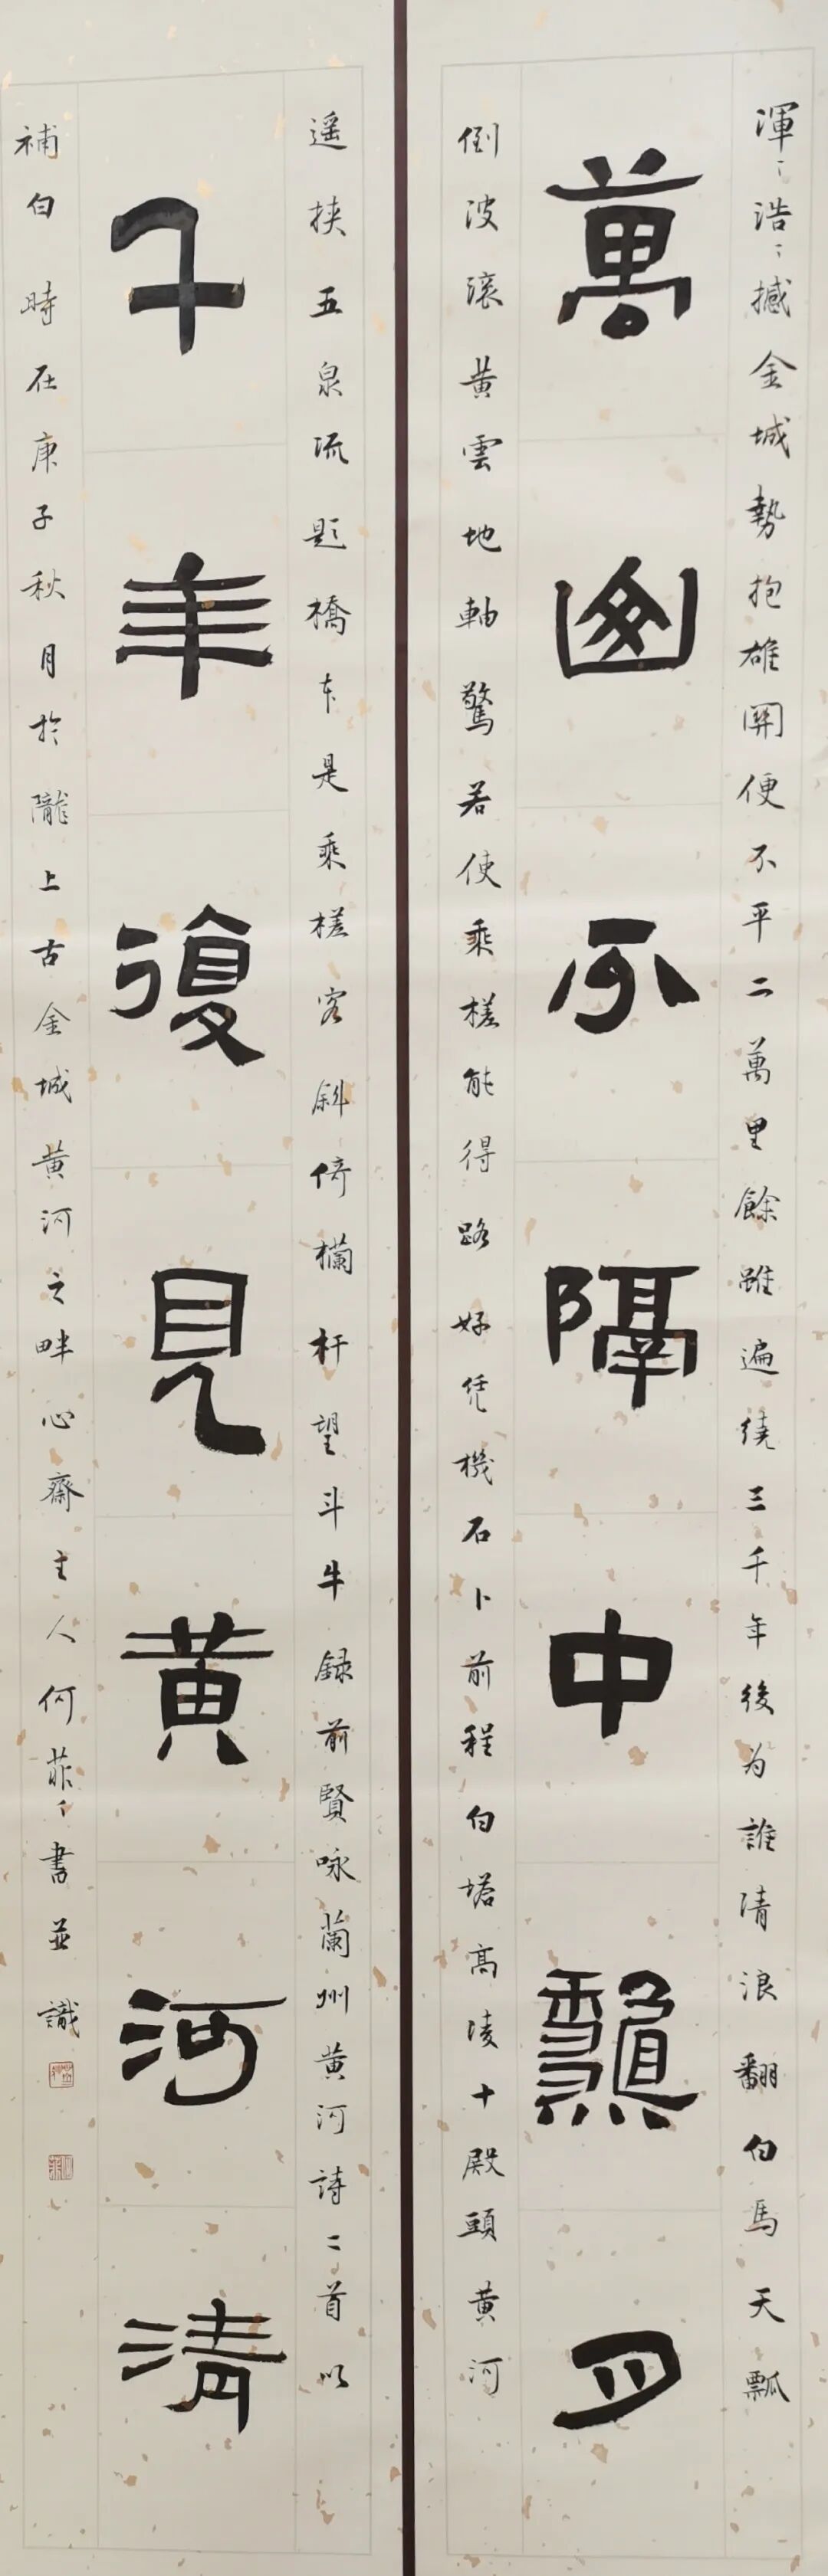 渾〻浩〻撼金城勢抱雄關便不平二萬里餘雖遍繞三千年後為誰清浪翻白馬天瓢
萬山不隔中秋月
倒波滾黄雲地軸驚若使乘槎能得路好凭機石卜前程白塔高陵十殿頭黄河
遥挟五泉流題橋本是乘槎客斜倚欄杆望斗牛録前賢咏蘭州黄河詩二首以
千年復見黄河清
補白時在庚子秋月於隴上古金城黄河之畔心齋主人何菲〻書並識